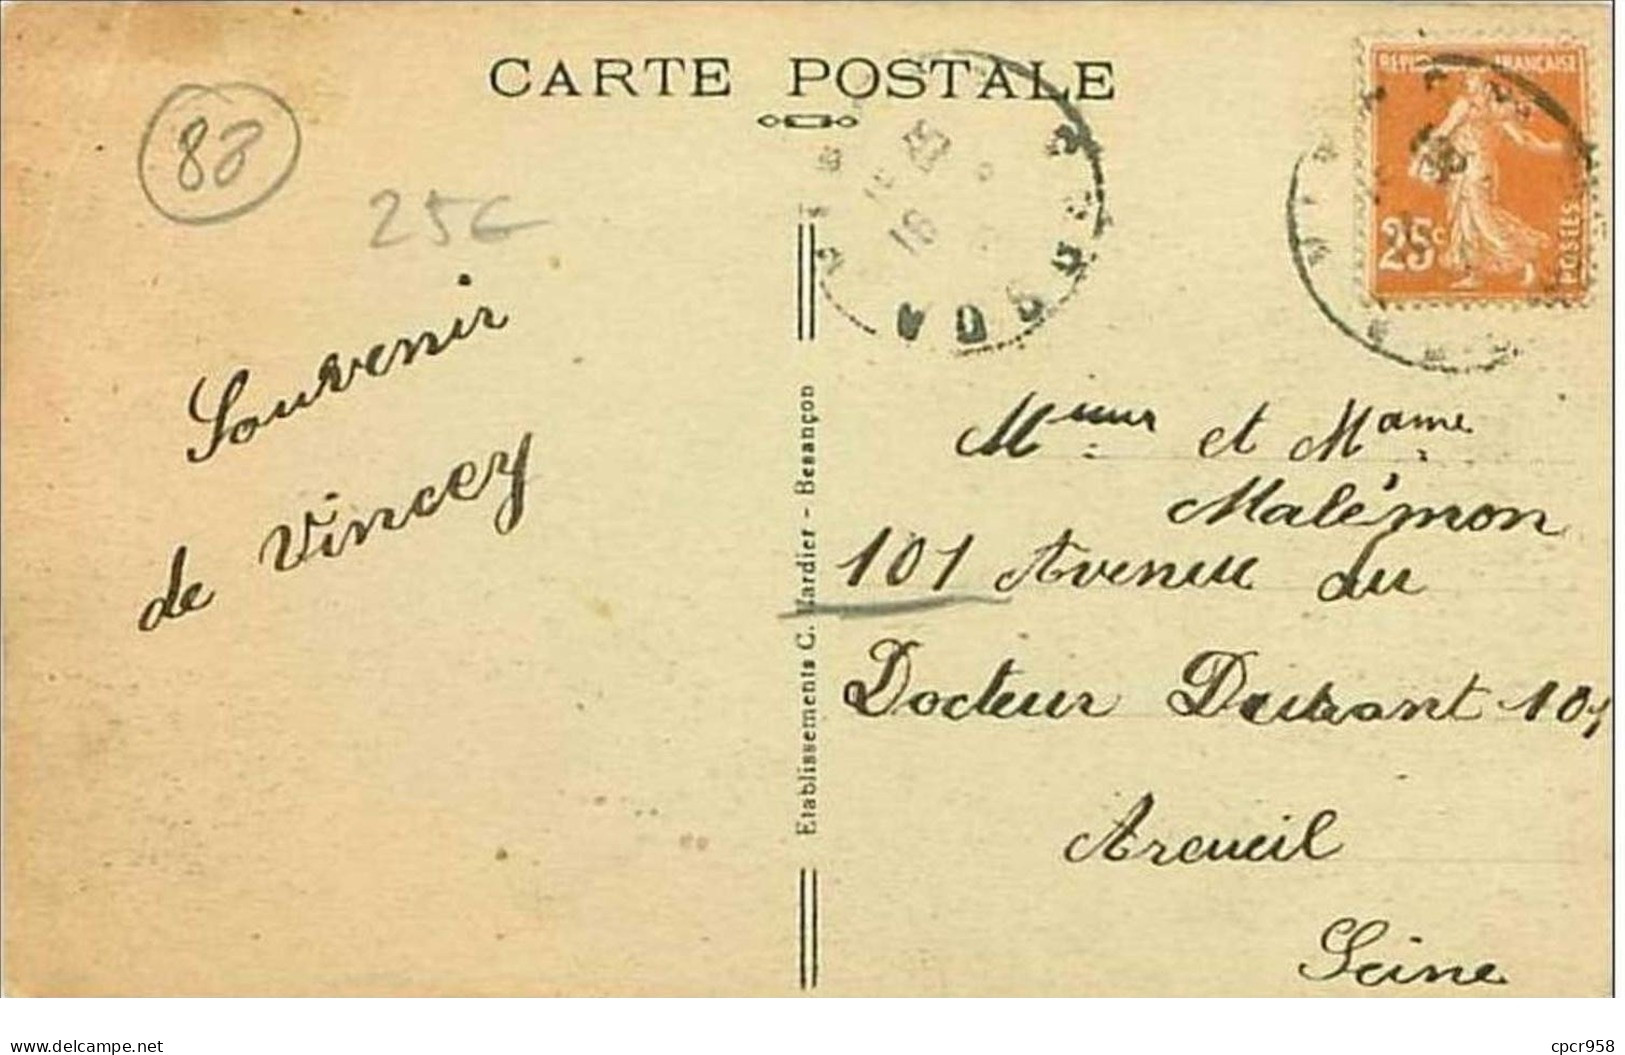 CARTE POSTALE
88
25c
REPUBLIQUE FRANÇAISE
25c
POSTES
Souvenir
de Vincey
Etablissements C. Lardier - Besançon
Mmeur et Mame
Malémon
101 Avenue du
Docteur Durant 101
Arcueil
Seine
Delcampe.net
cpcr958